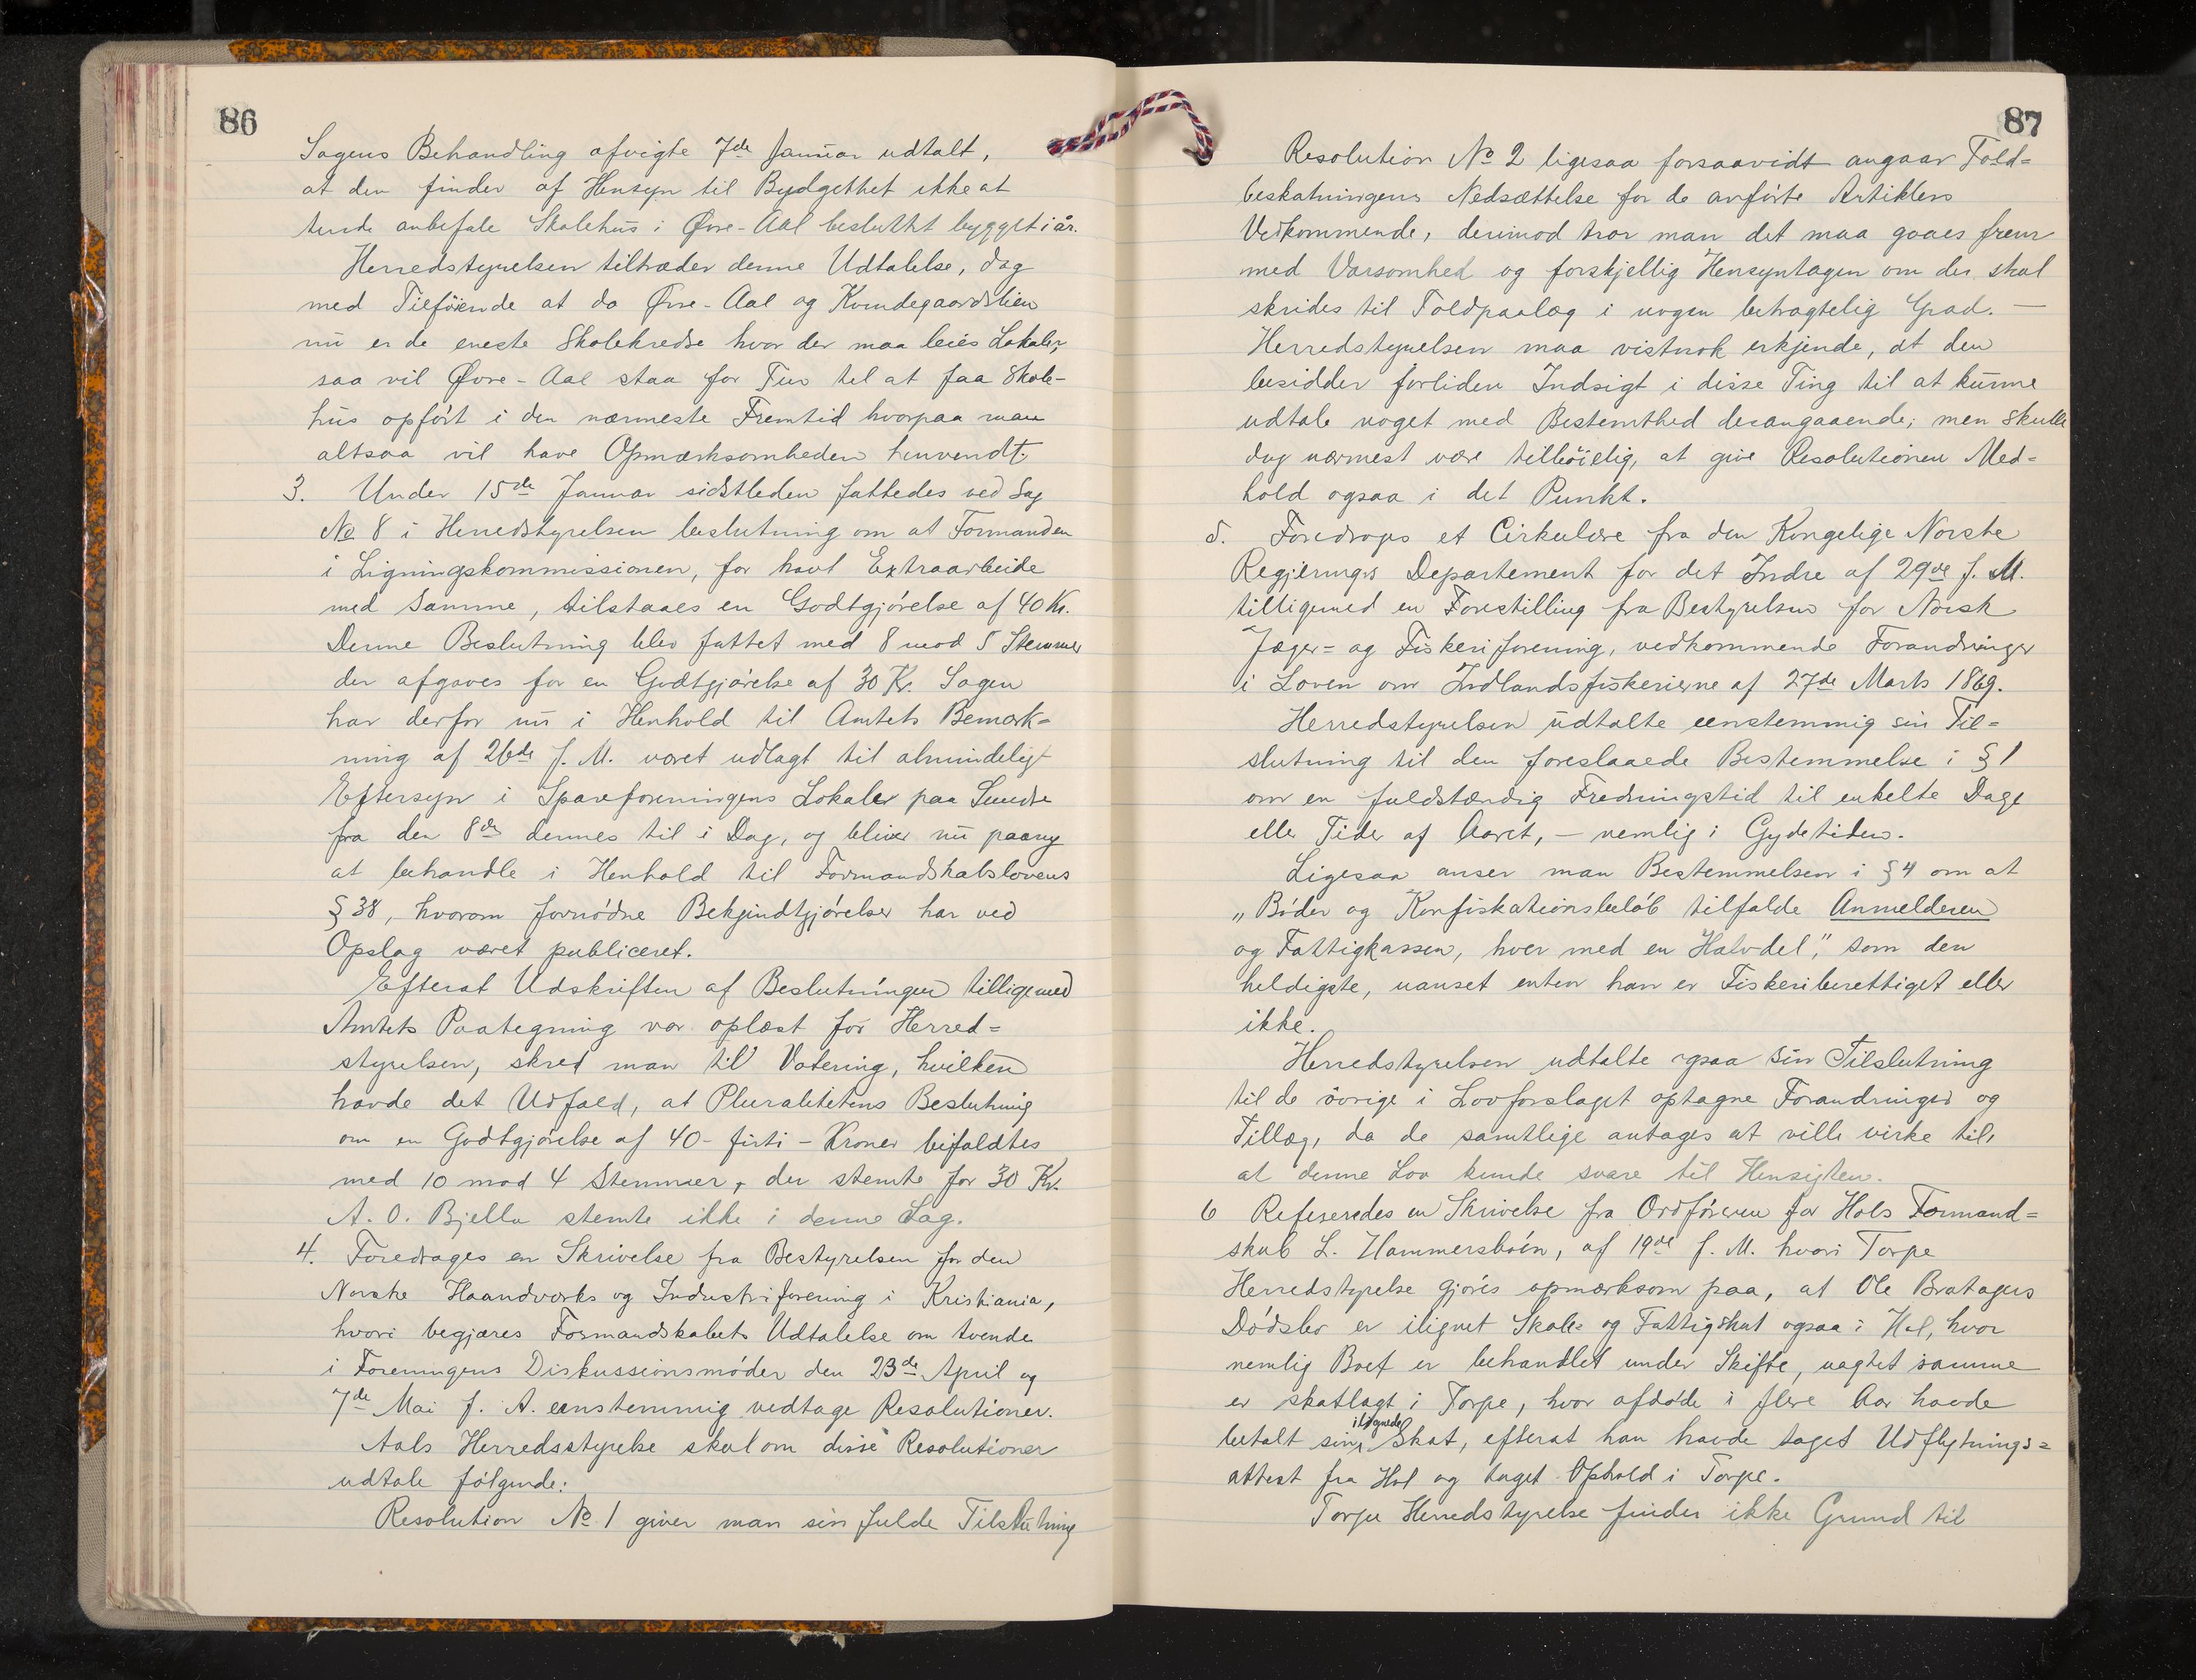 86
Sagens Behandling afvigte 7de Januar udtalt,
at den finder af Hensyn til Budgettet ikke at
turde anbefale Skolehus i Øvre-Aal besluttet bygget i år.
Herredstyrelsen tiltræder denne Udtalelse, dog
med Tilføiende at da Øvre-Aal og Kvindegaardslien
nu er de eneste Skolekredse hvor der maa leies Lokaler,
saa vil Øvre-Aal staa for Tur til at faa Skole-
hus opført i den nærmeste Fremtid hvorpaa man
altsaa vil have Opmærksomheden henvendt.
3. Under 15de Januar sidstleden fattedes ved Sag
No 8 i Herredstyrelsen beslutning om at Formanden
i Ligningskommissionen, for havt Extraarbeide
med samme, tilstaaes en Godtgjørelse af 40 Kr.
Denne Beslutning blev fattet med 8 mod 5 Stemmer
der afgaves for en Godtgjørelse af 30 Kr. Sagen
har derfor nu i Henhold til Amtets Bemærk=
ning af 26de f. M. været udlagt til almindeligt
Eftersyn i Spareforeningens Lokaler paa Sundre
fra den 8de dennes til i Dag, og bliver nu paany
at behandle i Henhold til Formandskabslovens
§ 38, hvorom fornødne Bekjendtgjørelser har ved
Opslag været publiceret.
Efterat Udskriften af Beslutningen tilligemed
Amtets Paategning var oplæst for Herred=
styrelsen, skred man til Votering, hvilken
havde det Udfald, at Pluralitetens Beslutning
om en Godtgjørelse af 40 - firti - Kroner bifaldtes
med 10 mod 4 Stemmer, der stemte for 30 Kr.
A. O. Bjella stemte ikke i denne Sag.
4. Foredrages en Skrivelse fra Bestyrelsen for den
Norske Haandværks og Industriforening i Kristiania,
hvori begjæres Formandskabets Udtalelse om tvende
i Foreningens Diskussionsmøder den 23de April og
7de Mai f. A. eenstemmig vedtage Resolutioner.
Aals Herredsstyrelse skal om disse Resolutioner
udtale følgende:
Resolution No 1 giver man sin fulde Tilslutning
87
Resolution No 2 ligesaa forsaavidt angaar Told=
beskatningens Nedsættelse for de anførte Artiklers
Vedkommende, derimod tror man det maa gaaes frem
med Varsomhed og forskjellig Hensyntagen om der skal
skrides til Toldpaalæg i nogen betragtelig Grad. —
Herredstyrelsen maa vistnok erkjende, at den
besidder forliden Indsigt i disse Ting til at kunne
udtale noget med Bestemthed derangaaende; men skulle
dog nærmest være tilbøielig, at give Resolutionen Med=
hold ogsaa i det Punkt.
5. Foredroges et Cirkulære fra den Kongelige Norske
Regjerings Departement for det Indre af 29de f. M.
tilligemed en Forestilling fra Bestyrelsen for Norsk
Jæger= og Fiskeriforening, vedkommende Forandringer
i Loven om Indlandsfiskerierne af 27de Marts 1869.
Herredstyrelsen udtalte eenstemmig sin Til=
slutning til den foreslaaede Bestemmelse i § 1
om en fuldstændig Fredningstid til enkelte Dage
eller Tider af Aaret, — nemlig i Gydetiden.
Ligesaa anser man Bestemmelsen i § 4 om at
„Bøder og Konfiskationsbeløb tilfalde Anmelderen
og Fattigkassen, hver med en Halvdel", som den
heldigste, uanset enten han er Fiskeriberettiget eller
ikke.
Herredstyrelsen udtalte ogsaa sin Tilslutning
til de øvrige i Lovforslaget optagne Forandringer og
Tillæg, da de samtlige antages at ville virke til,
at denne Lov kunde svare til Hensigten.
6 Refereredes en Skrivelse fra Ordføreren for Hols Formand=
skab L. Hammersbøen, af 19de f. M. hvori Torpe
Herredstyrelse gjøres opmærksom paa, at Ole Bratagers
Dødsbo er ilignet Skole= og Fattigskat ogsaa i Hol, hvor
nemlig Boet er behandlet under Skifte, uagtet samme
er skatlagt i Torpe, hvor afdøde i flere Aar havde
betalt sin ilignede Skat, efterat han havde taget Udflytnings=
attest fra Hol og taget Ophold i Torpe.
Torpe Herredstyrelse finder ikke Grund til